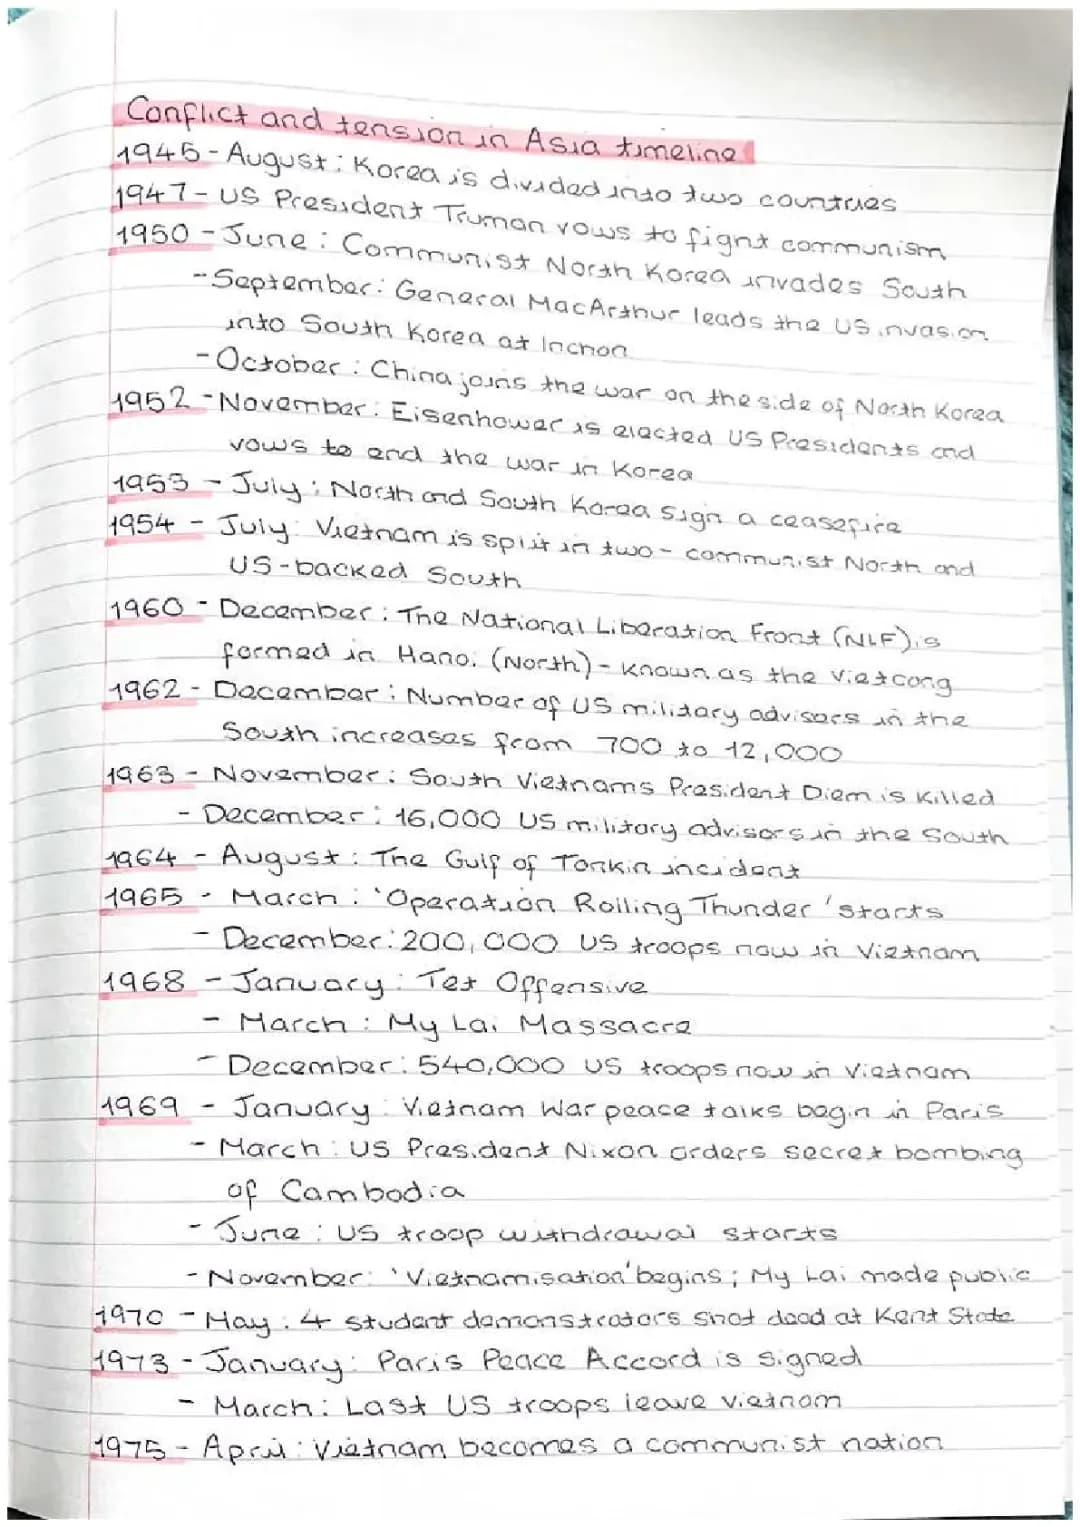 Conflict and tension in Asia timeline
1945 - August: Korea is divided into two countries
1947 - US President Truman vows to fight communism
1950 - June: Communist North Korea invades South
- September: General MacArthur leads the US invasion
into South Korea at Inchon
- October: China joins the war on the side of North Korea
1952 - November: Eisenhower is elected US Presidents and
vows to end the war in Korea
1953 - July: North and South Korea sign a ceasefire
1954 - July: Vietnam is split in two - communist North and
US-backed South
1960 - December: The National Liberation Front (NLF) is
formed in Hanoi (North) - known as the Vietcong
1962 - December: Number of US military advisors in the
South increases from 700 to 12,000
1963 - November: South Vietnams President Diem is killed
- December: 16,000 US military advisors in the South
1964 - August: The Gulf of Tonkin incident
1965 - March: 'Operation Rolling Thunder' starts
- December: 200,000 US troops now in Vietnam
1968 - January: Tet Offensive
- March: My Lai Massacre
- December: 540,000 US troops now in Vietnam
1969 - January: Vietnam War peace talks begin in Paris
- March: US President Nixon orders secret bombing
of Cambodia
- June: US troop withdrawal starts
- November: 'Vietnamisation' begins; My Lai made public
1970 - May: 4 student demonstrators shot dead at Kent State
1973 - January: Paris Peace Accord is signed
- March: Last US troops leave Vietnam
1975 - April: Vietnam becomes a communist nation